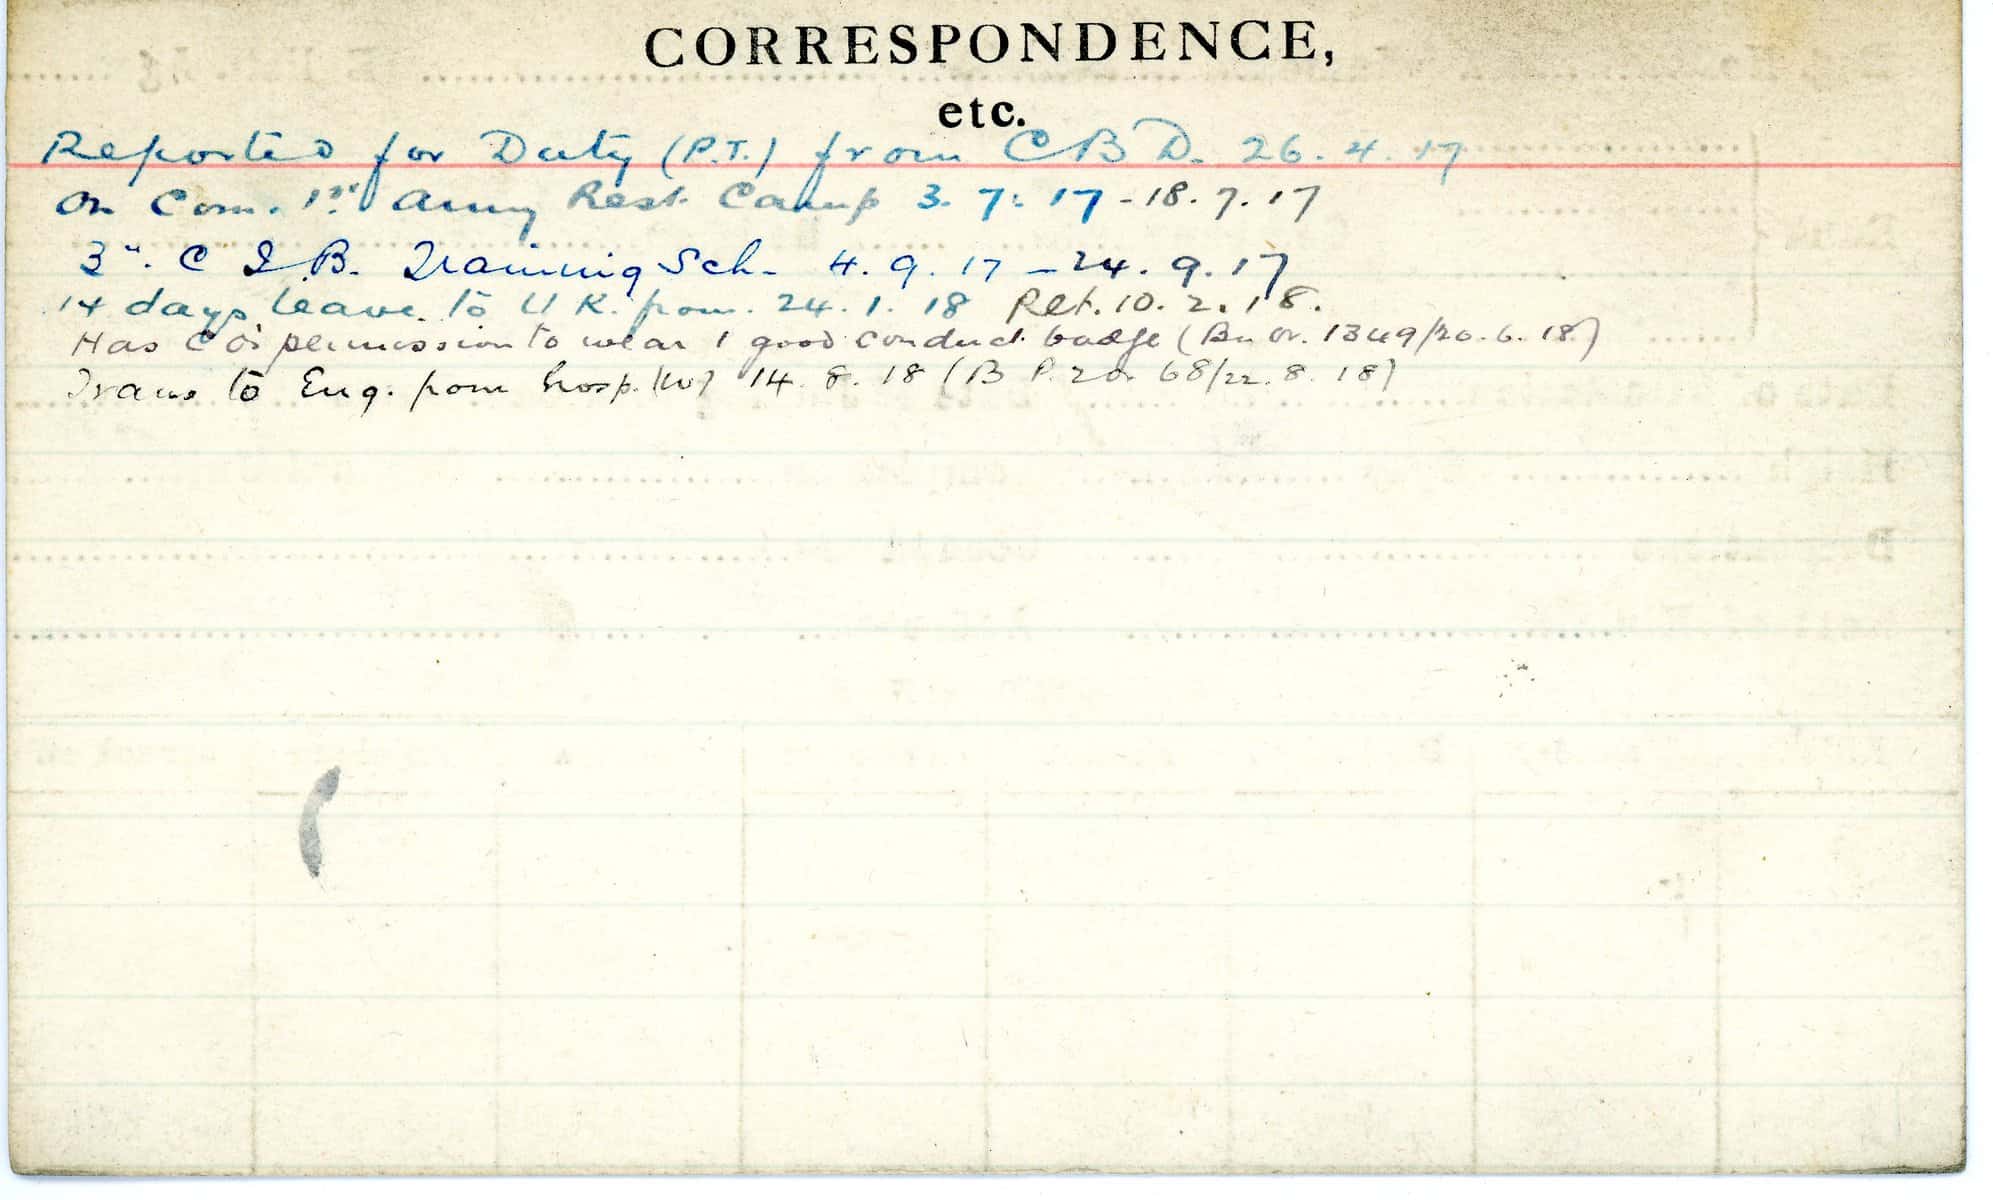 CORRESPONDENCE,
etc.
Reported for Duty (P.T.) from C B D. 26.4.17
On Com. 1st Army Rest Camp 3.7.17 - 18.7.17
3rd. C I B. Training Sch. 4.9.17 - 24.9.17
14 days leave to U K. from 24.1.18 Ret. 10.2.18.
Has C O's permission to wear 1 good conduct badge (Bn Or. 1349/20.6.18)
Trans to Eng. from hosp. (W) 14.8.18 (B P. 68/22.8.18)